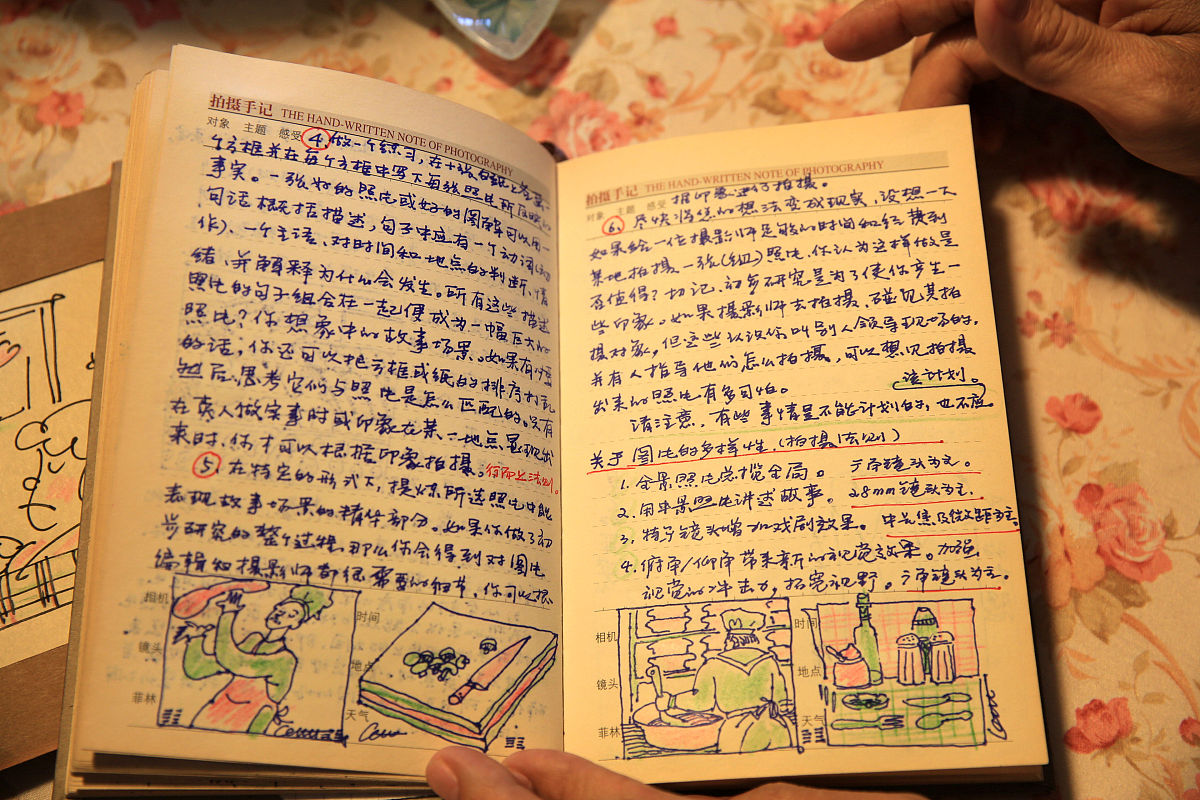 拍摄手记 THE HAND-WRITTEN NOTE OF PHOTOGRAPHY
对象 主题 感受 4. 做一个练习，在十张白纸上各画一
个方框并在每个方框中写下每张照片所反映的
事实。一张好的照片或好的图解可以用一
句话概括描述，句子中应有一个动词（动
作）、一个主语、对时间和地点的判断、情
绪、并解释为什么会发生。所有这些描述
照片的句子组合在一起便成为一幅巨大的
照片？你想象中的故事场景。如果有
的话，你还可以把方框或纸的排序打乱
然后思考它们与照片是怎么匹配的。只有
在真人做实事时或印象在某一地点显现出
来时，你才可以根据印象拍摄。行而上法则。
5. 在特定的形式下，提炼所选照片中能
表现故事场景的精华部分。如果你做了初
步研究的整个过程，那么你会得到对图片
编辑和摄影师都很需要的细节，你可以根
相机 时间
镜头 地点
菲林 天气
拍摄手记 THE HAND-WRITTEN NOTE OF PHOTOGRAPHY
对象 主题 感受 据印象进行拍摄。
6. 尽快将您的想法变成现实，设想一下
如果给一位摄影师足够的时间和经费到
某地拍摄一张（组）照片，你认为这样做是
否值得？切记，初步研究是为了使你产生一
些印象。如果摄影师去拍摄，碰见其拍
摄对象，但这些认识你叫别人领导现场的，
并有人指导他们怎么拍摄，可以想见拍摄
出来的照片有多可怕。
该计划。
请注意，有些事情是不能计划的，也不应
关于图片的多样性（拍摄法则）
1. 全景照片总揽全局。 广角镜头为主。
2. 用中景照片讲述故事。 28mm镜头为主.
3. 特写镜头增加戏剧效果。 中长焦及微距为主。
4. 俯角/仰角带来新的视觉效果。加强
视觉的冲击力，拓宽视野。广角镜头为主。
相机 时间
镜头 地点
菲林 天气